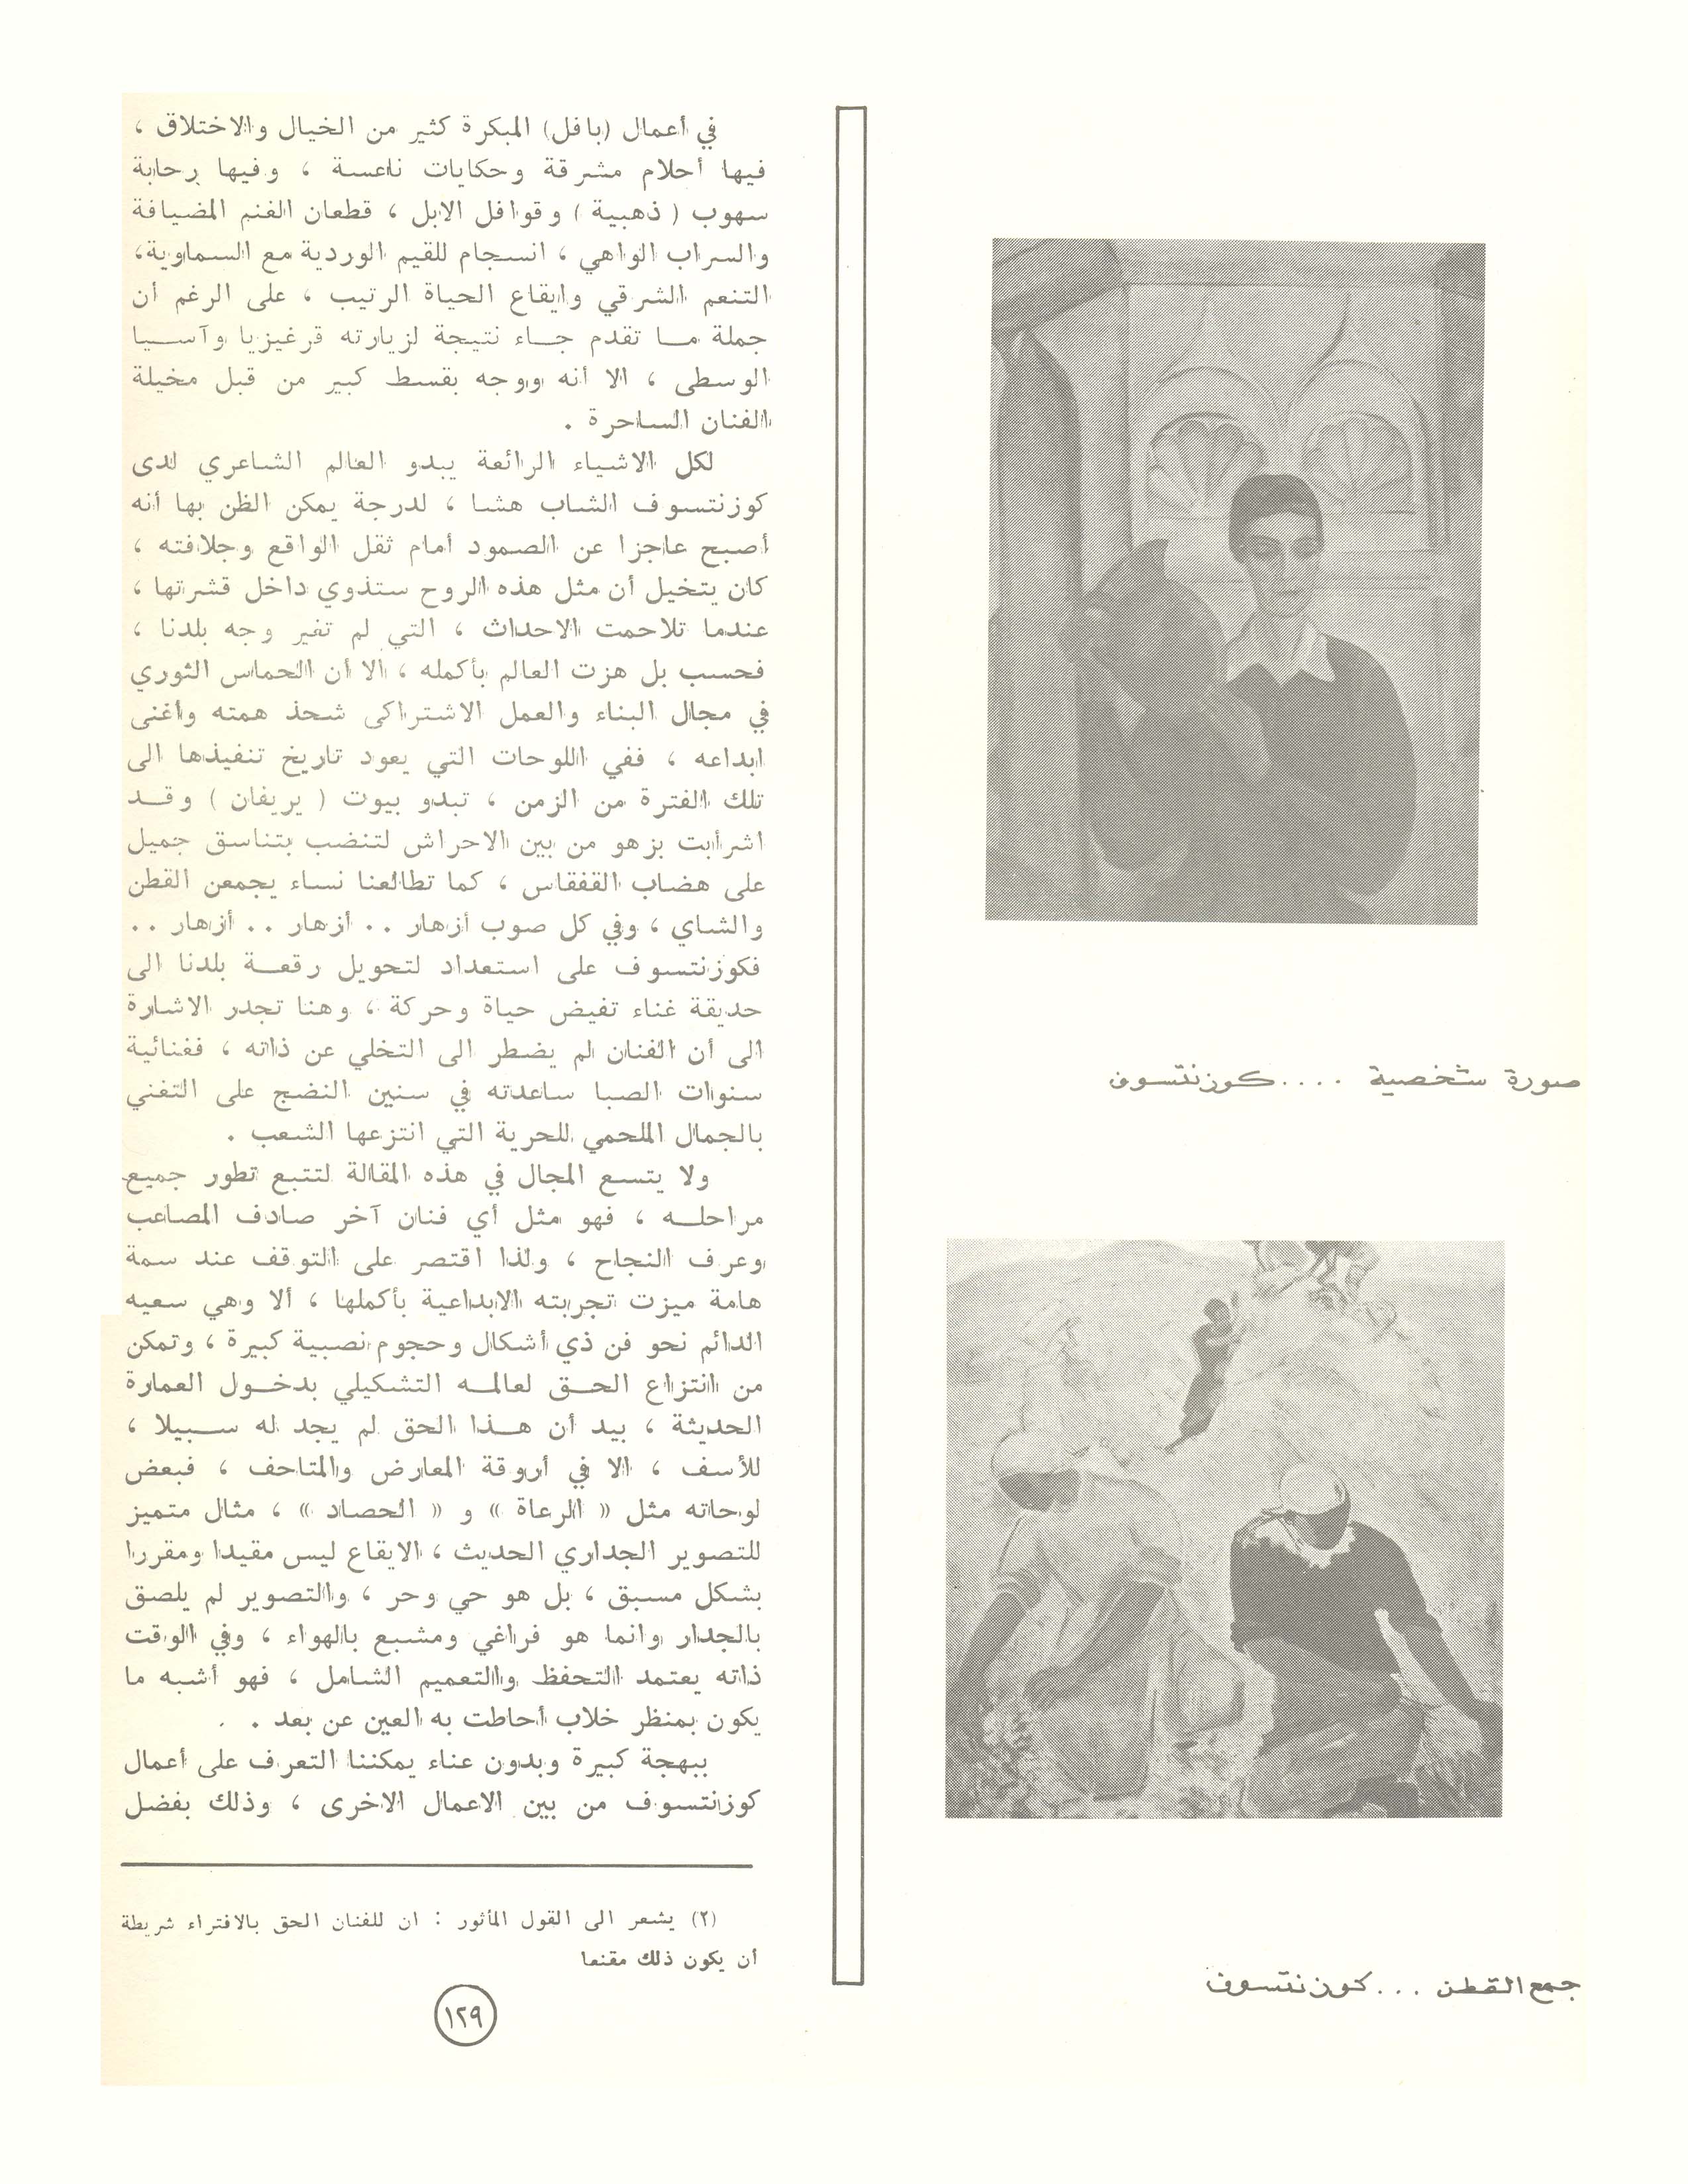 في أعمال (بافل) المبكرة كثير من الخيال والاختلاق ،
فيها أحلام مشرقة وحكايات ناعسة ، وفيها رحابة
سهوب ( ذهبية ) وقوافل الابل ، قطعان الغنم المضيافة
والسراب الواهي ، انسجام للقيم الوردية مع السماوية،
التنعم الشرقي وايقاع الحياة الرتيب ، على الرغم أن
جملة مـا تقدم جـاء نتيجة لزيارته قرغيزيا وآسـيا
الوسطى ، الا أنه ووجه بقسط كبير من قبل مخيلة
الفنان الساحرة .
لكل الاشياء الرائعة يبدو العالم الشاعري لدى
كوزنتسوف الشاب هشا ، لدرجة يمكن الظن بها أنه
أصبح عاجزا عن الصمود أمام ثقل الواقع وجلافته ،
كان يتخيل أن مثل هذه الروح ستذوي داخل قشرتها ،
عندما تلاحمت الاحداث ، التي لم تغير وجه بلدنا ،
فحسب بل هزت العالم بأكمله ، الا أن الحماس الثوري
في مجال البناء والعمل الاشتراكي شحذ همته وأغنى
ابداعه ، ففي اللوحات التي يعود تاريخ تنفيذها الى
تلك الفترة من الزمن ، تبدو بيوت ( يريفان ) وقـد
اشرأبت بزهو من بين الاحراش لتنضب بتناسق جميل
على هضاب القفقاس ، كما تطالعنا نساء يجمعن القطن
والشاي ، وفي كل صوب أزهار .. أزهار .. أزهار ..
فكوزنتسوف على استعداد لتحويل رقعـة بلدنا الى
حديقة غناء تفيض حياة وحركة ، وهنا تجدر الاشارة
الى أن الفنان لم يضطر الى التخلي عن ذاته ، فغنائية
سنوات الصبا ساعدته في سنين النضج على التغني
بالجمال الملحمي للحرية التي انتزعها الشعب .
ولا يتسع المجال في هذه المقالة لتتبع تطور جميع
مراحلـه ، فهو مثل أي فنان آخر صادف المصاعب
وعرف النجاح ، ولذا اقتصر على التوقف عند سمة
هامة ميزت تجربته الابداعية بأكملها ، ألا وهي سعيه
الدائم نحو فن ذي أشكال وحجوم نصبية كبيرة ، وتمكن
من انتزاع الحـق لعالمـه التشكيلي بدخـول العمارة
الحديثة ، بيد أن هـذا الحق لم يجد له سـبيلا ،
للأسف ، الا في أروقة المعارض والمتاحف ، فبعض
لوحاته مثل « الرعاة » و « الحصاد » ، مثال متميز
للتصوير الجداري الحديث ، الايقاع ليس مقيدا ومقررا
بشكل مسبق ، بل هو حي وحر ، والتصوير لم يلصق
بالجدار وانما هو فراغي ومشبع بالهواء ، وفي الوقت
ذاته يعتمد التحفظ والتعميم الشامل ، فهو أشبه ما
يكون بمنظر خلاب أحاطت به العين عن بعد .
ببهجة كبيرة وبدون عناء يمكننا التعرف على أعمال
كوزنتسوف من بين الاعمال الاخرى ، وذلك بفضل
(٢) يشعر الى القول المأثور : ان للفنان الحق بالافتراء شريطة
أن يكون ذلك مقنعا
١٢٩
صورة شخصية .... كوزنتسوف
جمع القطن ... كوزنتسوف